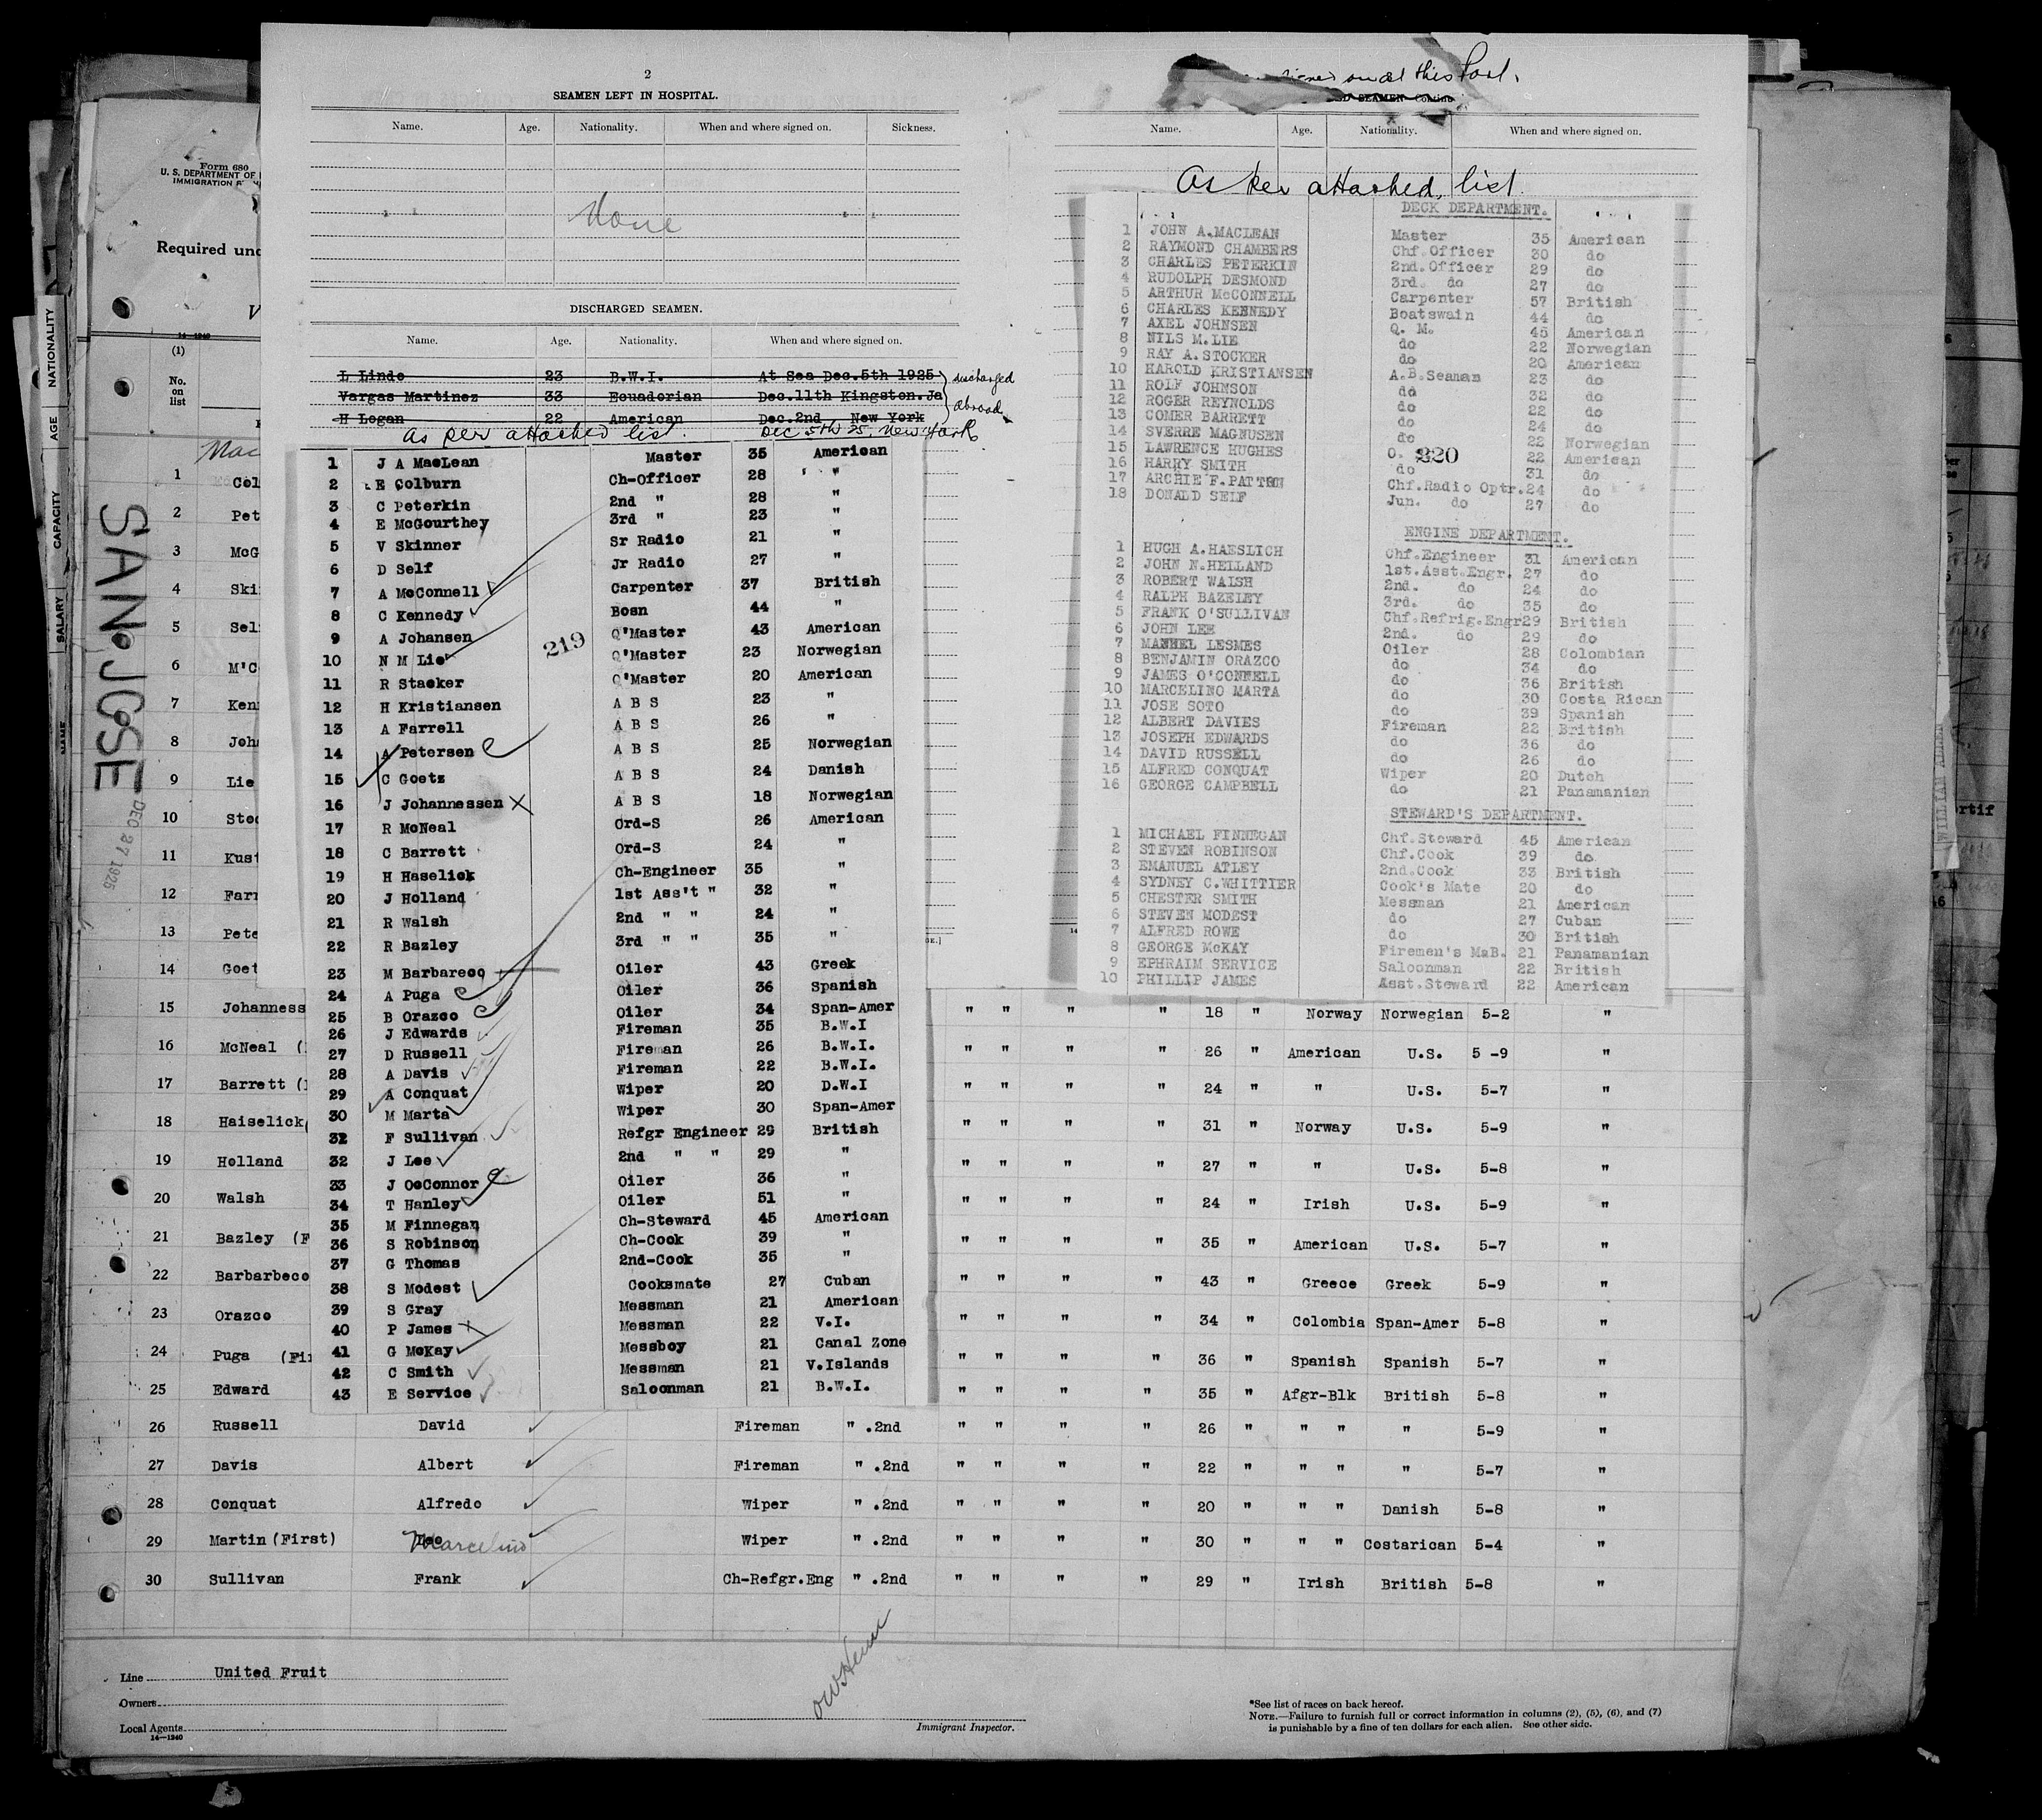 2
SEAMEN LEFT IN HOSPITAL.
Name. Age. Nationality. When and where signed on. Sickness.
None
DISCHARGED SEAMEN.
Name. Age. Nationality. When and where signed on.
L Lindo 23 B.W.I. At Sea Dec.5th 1925
Vargas Martinez 33 Ecuadorian Dec.11th Kingston.Ja
H Logan 22 American Dec.2nd New York
discharged abroad
as per attached list. Dec 5th 25, New York
1 J A MacLean Master 35 American
2 E Colburn Ch-Officer 28 "
3 C Peterkin 2nd " 28 "
4 E McGourthey 3rd " 23 "
5 V Skinner Sr Radio 21 "
6 D Self Jr Radio 27 "
7 A McConnell Carpenter 37 British
8 C Kennedy Bosn 44 "
9 A Johansen Q'Master 43 American
219
10 N M Lie Q'Master 23 Norwegian
11 R Stacker Q'Master 20 American
12 H Kristiansen A B S 23 "
13 A Farrell A B S 26 "
14 A Petersen A B S 25 Norwegian
15 C Goetz A B S 24 Danish
16 J Johannessen A B S 18 Norwegian
17 R McNeal Ord-S 26 American
18 C Barrett Ord-S 24 "
19 H Haselick Ch-Engineer 35 "
20 J Holland 1st Ass't " 32 "
21 R Walsh 2nd " " 24 "
22 R Bazley 3rd " " 35 "
23 M Barbareco Oiler 43 Greek
24 A Puga Oiler 36 Spanish
25 B Orazco Oiler 34 Span-Amer
26 J Edwards Fireman 35 B.W.I
27 D Russell Fireman 26 B.W.I.
28 A Davis Fireman 22 B.W.I.
29 A Conquat Wiper 20 D.W.I
30 M Marta Wiper 30 Span-Amer
32 F Sullivan Refgr Engineer 29 British
32 J Lee 2nd " " 29 "
33 J OcConnor Oiler 36 "
34 T Hanley Oiler 51 "
35 M Finnegan Ch-Steward 45 American
36 S Robinson Ch-Cook 39 "
37 G Thomas 2nd-Cook 35 "
38 S Modest Cooksmate 27 Cuban
39 S Gray Messman 21 American
40 P James Messman 22 V.I.
41 G McKay Messboy 21 Canal Zone
42 C Smith Messman 21 V.Islands
43 E Service Saloonman 21 B.W.I.
on at this Port.
SEAMEN
Name. Age. Nationality. When and where signed on.
As per attached, list
DECK DEPARTMENT.
1 JOHN A.MACLEAN Master 35 American
2 RAYMOND CHAMBERS Chf.Officer 30 do
3 CHARLES PETERKIN 2nd.Officer 29 do
4 RUDOLPH DESMOND 3rd. do 27 do
5 ARTHUR McCONNELL Carpenter 57 British
6 CHARLES KENNEDY Boatswain 44 do
7 AXEL JOHNSEN Q. M. 45 American
8 NILS M.LIE do 22 Norwegian
9 RAY A.STOCKER do 20 American
10 HAROLD KRISTIANSEN A.B.Seaman 23 do
11 ROLF JOHNSON do 32 do
12 ROGER REYNOLDS do 22 do
13 COMER BARRETT do 24 do
14 SVERRE MAGNUSEN do 22 Norwegian
15 LAWRENCE HUGHES O. 22 American
220
16 HARRY SMITH do 31 do
17 ARCHIE F.PATTON Chf.Radio Optr. 24 do
18 DONALD SELF Jun. do 27 do
ENGINE DEPARTMENT.
1 HUGH A.HAESLICH Chf.Engineer 31 American
2 JOHN N.HELLAND 1st.Asst.Engr. 27 do
3 ROBERT WALSH 2nd. do 24 do
4 RALPH BAZELEY 3rd. do 35 do
5 FRANK O'SULLIVAN Chf.Refrig.Engr 29 British
6 JOHN LEE 2nd. do 29 do
7 MANUEL LESMES Oiler 28 Colombian
8 BENJAMIN ORAZCO do 34 do
9 JAMES O'CONNELL do 36 British
10 MARCELINO MARTA do 30 Costa Rican
11 JOSE SOTO do 39 Spanish
12 ALBERT DAVIES Fireman 22 British
13 JOSEPH EDWARDS do 36 do
14 DAVID RUSSELL do 26 do
15 ALFRED CONQUAT Wiper 20 Dutch
16 GEORGE CAMPBELL do 21 Panamanian
STEWARD'S DEPARTMENT.
1 MICHAEL FINNEGAN Chf.Steward 45 American
2 STEVEN ROBINSON Chf.Cook 39 do
3 EMANUEL ATLEY 2nd.Cook 33 British
4 SYDNEY C.WHITTIER Cook's Mate 20 do
5 CHESTER SMITH Messman 21 American
6 STEVEN MODEST do 27 Cuban
7 ALFRED ROWE do 30 British
8 GEORGE McKAY Firemen's MsB. 21 Panamanian
9 EPHRAIM SERVICE Saloonman 22 British
10 PHILLIP JAMES Asst.Steward 22 American
Form 680
U. S. DEPARTMENT OF
IMMIGRATION
Required und
14—1240
(1)
No. on list
NATIONALITY
AGE
CAPACITY
SALARY
NAME
SAN JOSE
DEC 27 1925
Mac
1 Col
2 Pet
3 McG
4 Ski
5 Sel
6 M'C
7 Ken
8 Joh
9 Lie
10 Sto
11 Kus
12 Farr
13 Pete
14 Goet
15 Johanness " " " " 18 " Norway Norwegian 5-2 "
16 McNeal ( " " " " 26 " American U.S. 5 -9 "
17 Barrett ( " " " " 24 " " U.S. 5-7 "
18 Haiselick " " " " 31 " Norway U.S. 5-9 "
19 Holland " " " " 27 " " U.S. 5-8 "
20 Walsh " " " " 24 " Irish U.S. 5-9 "
21 Bazley (F " " " " 35 " American U.S. 5-7 "
22 Barbarbeco " " " " 43 " Greece Greek 5-9 "
23 Orazco " " " " 34 " Colombia Span-Amer 5-8 "
24 Puga (Fir " " " " 36 " Spanish Spanish 5-7 "
25 Edward " " " " 35 " Afgr-Blk British 5-8 "
26 Russell David Fireman " .2nd " " " " 26 " " " " 5-9 "
27 Davis Albert Fireman " .2nd " " " " 22 " " " " 5-7 "
28 Conquat Alfredo Wiper " .2nd " " " " 20 " " " Danish 5-8 "
29 Martin (First) Marcelino Wiper " .2nd " " " " 30 " " " Costarican 5-4 "
30 Sullivan Frank Ch-Refgr.Eng " .2nd " " " " 29 " Irish British 5-8 "
Line United Fruit
Owners
Local Agents
14—1240
Immigrant Inspector.
*See list of races on back hereof.
NOTE.—Failure to furnish full or correct information in columns (2), (5), (6), and (7)
is punishable by a fine of ten dollars for each alien. See other side.